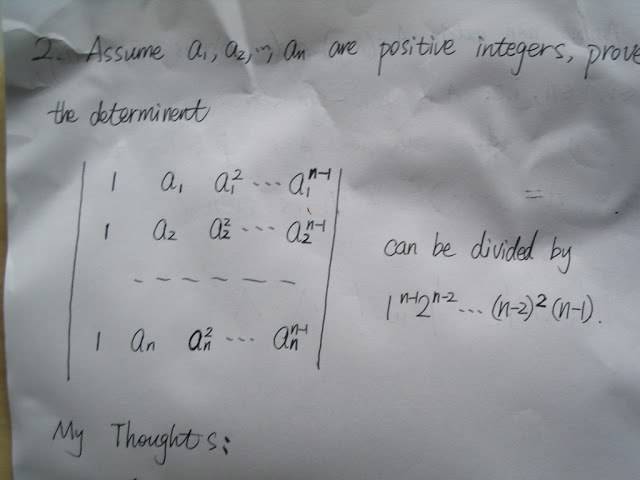 2. Assume a₁, a₂, ..., aₙ are positive integers, prove
the determinent
1 a₁ a₁² ... a₁ⁿ⁻¹
1 a₂ a₂² ... a₂ⁿ⁻¹
- - - - - -
can be divided by
1ⁿ⁻¹2ⁿ⁻² ... (n-2)²(n-1).
1 aₙ aₙ² ... aₙⁿ⁻¹
My Thoughts: